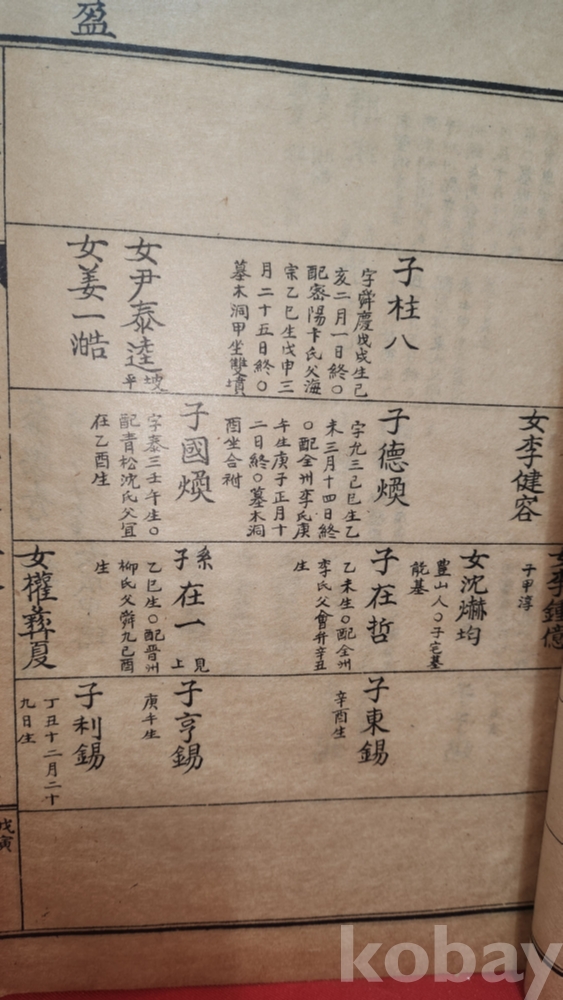 盈
子柱八
字舜慶戊戌生己
亥二月一日終〇
配密陽卞氏父海
宗乙巳生戊申三
月二十五日終〇
墓木洞甲坐雙墳
女尹泰逵
坡平
女姜一澔
女李健容
子德煥
字九三己巳生乙
未三月十四日終
〇配全州李氏庚
午生庚子正月十
二日終〇墓木洞
酉坐合祔
子國煥
字泰三壬午生〇
配青松沈氏父宜
在乙酉生
女李鍾億
子甲淳
女沈爀均
豊山人〇子宅基
能基
子在哲
乙未生〇配全州
李氏父會升辛丑
生
系子在一
見上
乙巳生〇配晋州
柳氏父舜九己酉
生
女權彝夏
子東錫
辛酉生
子亨錫
庚午生
子利錫
丁丑十二月二十
九日生
戊寅
kobay